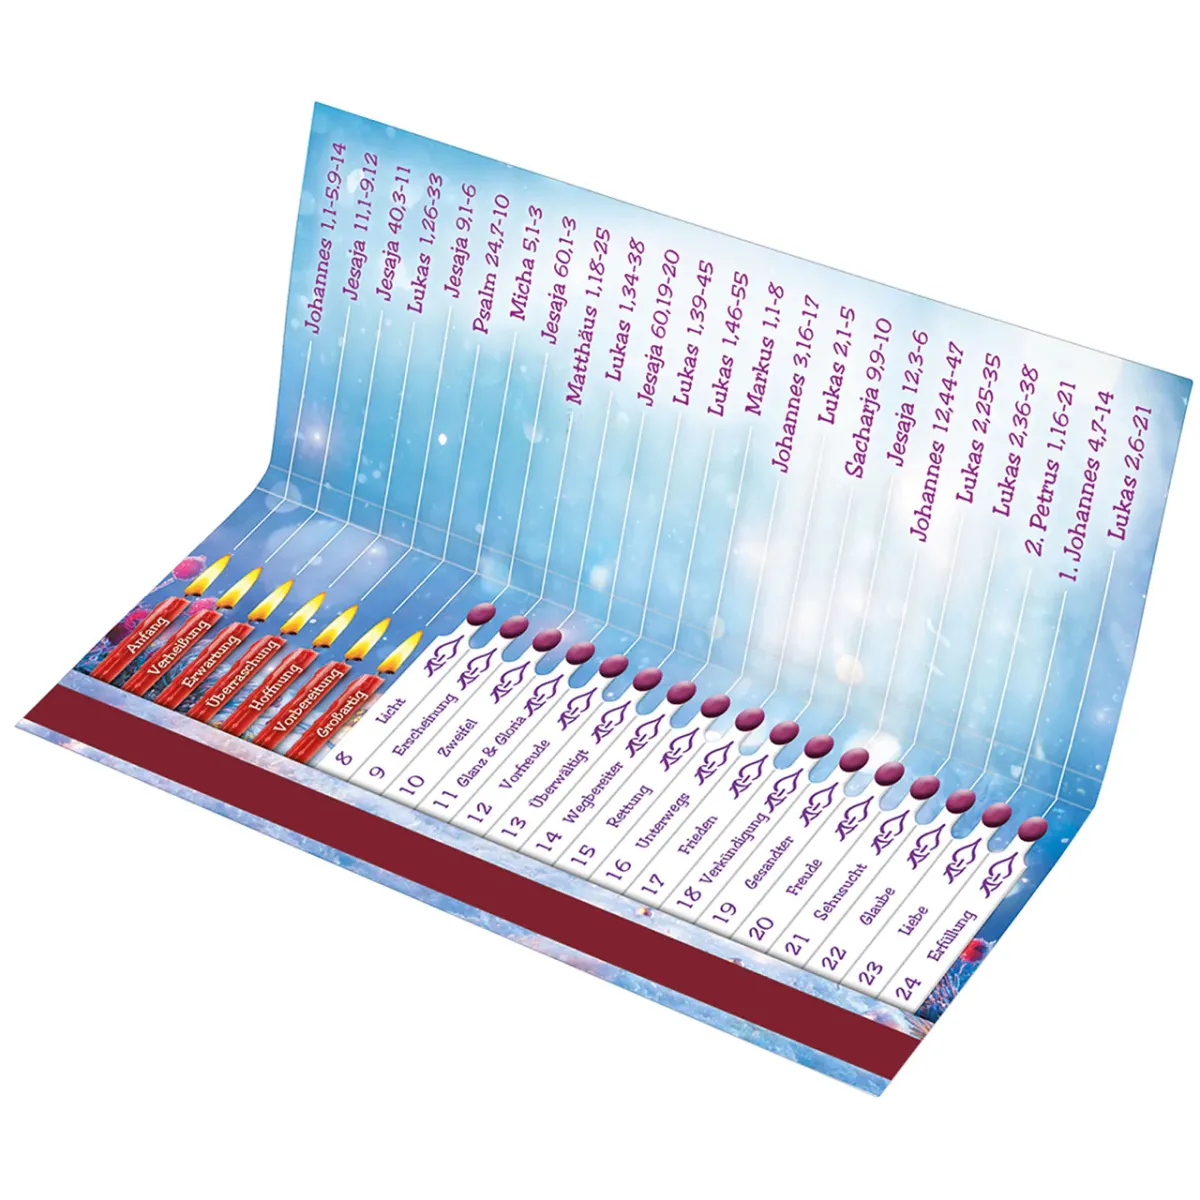 Johannes 1,1-5.9-14
Jesaja 11,1-9.12
Jesaja 40,3-11
Lukas 1,26-33
Jesaja 9,1-6
Psalm 24,7-10
Micha 5,1-3
Jesaja 60,1-3
Matthäus 1,18-25
Lukas 1,34-38
Jesaja 60,19-20
Lukas 1,39-45
Lukas 1,46-55
Markus 1,1-8
Johannes 3,16-17
Lukas 2,1-5
Sacharja 9,9-10
Jesaja 12,3-6
Johannes 12,44-47
Lukas 2,25-35
Lukas 2,36-38
2. Petrus 1,16-21
1. Johannes 4,7-14
Lukas 2,6-21
Anfang
Verheißung
Erwartung
Überraschung
Hoffnung
Vorbereitung
Großartig
8 Licht
9 Erscheinung
10 Zweifel
11 Glanz & Gloria
12 Vorfreude
13 Überwältigt
14 Wegbereiter
15 Rettung
16 Unterwegs
17 Frieden
18 Verkündigung
19 Gesandter
20 Freude
21 Sehnsucht
22 Glaube
23 Liebe
24 Erfüllung